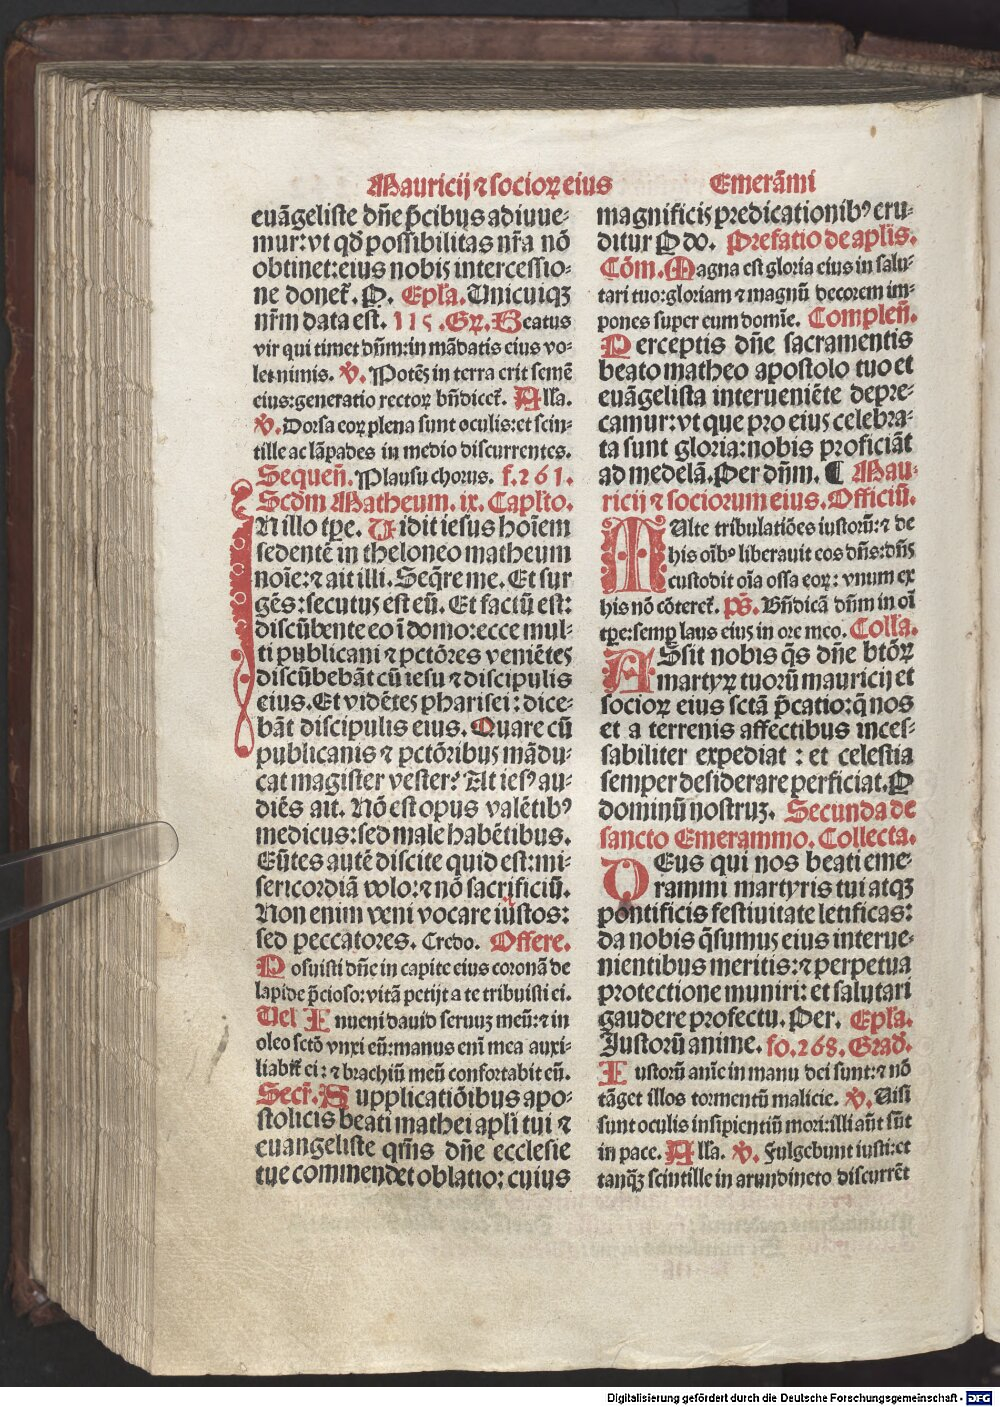 Mauricij ⁊ socioꝝ eius Emerãmi
euãgeliste dñe p̃cibus adiuue-
mur: vt qd̃ possibilitas nr̃a nõ
obtinet: eius nobis intercessio-
ne donet᷑. P. Epl̃a. Unicuiqꝫ
nr̃m data est. 115. Gꝝ. Beatus
vir qui timet dñm: in mãdatis eius vo-
let nimis. ℣. Potẽs in terra erit semẽ
eius: generatio rectoꝝ bñdicet᷑. All'a.
℣. Dorsa eoꝝ plena sunt oculis: et scin-
tille ac lãpades in medio discurrentes.
Sequeñ. Plausu chorus. f. 261.
Scd̃m Matheum. ix. Capl̃to.
IN illo tp̃e. Uidit iesus hoĩem
sedentẽ in theloneo matheum
noĩe: ⁊ ait illi. Seq̃re me. Et sur
gẽs: secutus est eũ. Et factũ est:
discũbente eo ĩ domo: ecce mul-
ti publicani ⁊ pctõres veniẽtes
discũbebãt cũ iesu ⁊ discipulis
eius. Et vidẽtes pharisei: dice-
bãt discipulis eius. Quare cũ
publicanis ⁊ pctõribus mãdu-
cat magister vester? At iesꝰ au-
diẽs ait. Nõ est opus valẽtibꝰ
medicus: sed male habẽtibus.
Eũtes autẽ discite quid est: mi-
sericordiã volo: ⁊ nõ sacrificiũ.
Non enim veni vocare iustos:
sed peccatores. Credo. Offere.
Posuisti dñe in capite eius coronã de
lapide p̃cioso: vitã petijt a te tribuisti ei.
Uel Inueni dauid seruuꝫ meũ: ⁊ in
oleo sctõ vnxi eũ: manus enĩ mea auxi-
liabit᷑ ei: ⁊ brachiũ meũ confortabit eũ.
Secr̃. Supplicatiõibus apo-
stolicis beati mathei apl̃i tui ⁊
euangeliste qm̃s dñe ecclesie
tue commendet oblatio: cuius
magnificis predicationibꝰ eru-
ditur P do. Prefatio de aplis.
Cõm. Magna est gloria eius in salu-
tari tuo: gloriam ⁊ magnũ decorem im-
pones super eum domĩe. Compleñ.
Perceptis dñe sacramentis
beato matheo apostolo tuo et
euãgelista interueniẽte depre-
camur: vt que pro eius celebra-
ta sunt gloria: nobis proficiãt
ad medelã. Per dñm. ¶ Mau-
ricij ⁊ sociorum eius. Officiũ.
MUlte tribulatiões iustorũ: ⁊ de
his oĩbꝰ liberauit eos dñs: dñs
custodit oĩa ossa eoꝝ: vnum ex
his nõ cõteret᷑. ps̃. Bñdicã dñm in oĩ
tp̃e: semꝑ laus eius in ore meo. Coll'a.
ASsit nobis q̃s dñe btõꝝ
martyꝝ tuorũ mauricij et
socioꝝ eius sctã p̃catio: q̃ nos
et a terrenis affectibus inces-
sabiliter expediat: et celestia
semper desiderare perficiat. P
dominũ nostruꝫ. Secunda de
sancto Emerammo. Collecta.
DEus qui nos beati eme-
rammi martyris tui atqꝫ
pontificis festiuitate letificas:
da nobis q̃sumus eius interue-
nientibus meritis: ⁊ perpetua
protectione muniri: et salutari
gaudere profectu. Per. Epl̃a.
Justorũ anime. fo. 268. Grad̃.
Iustorũ aĩe in manu dei sunt: ⁊ nõ
tãget illos tormentũ malicie. ℣. Uisi
sunt oculis insipientiũ mori: illi aũt sũt
in pace. All'a. ℣. Fulgebunt iusti: et
tanqꝫ scintille in arundineto discurrẽt
Digitalisierung gefördert durch die Deutsche Forschungsgemeinschaft - DFG